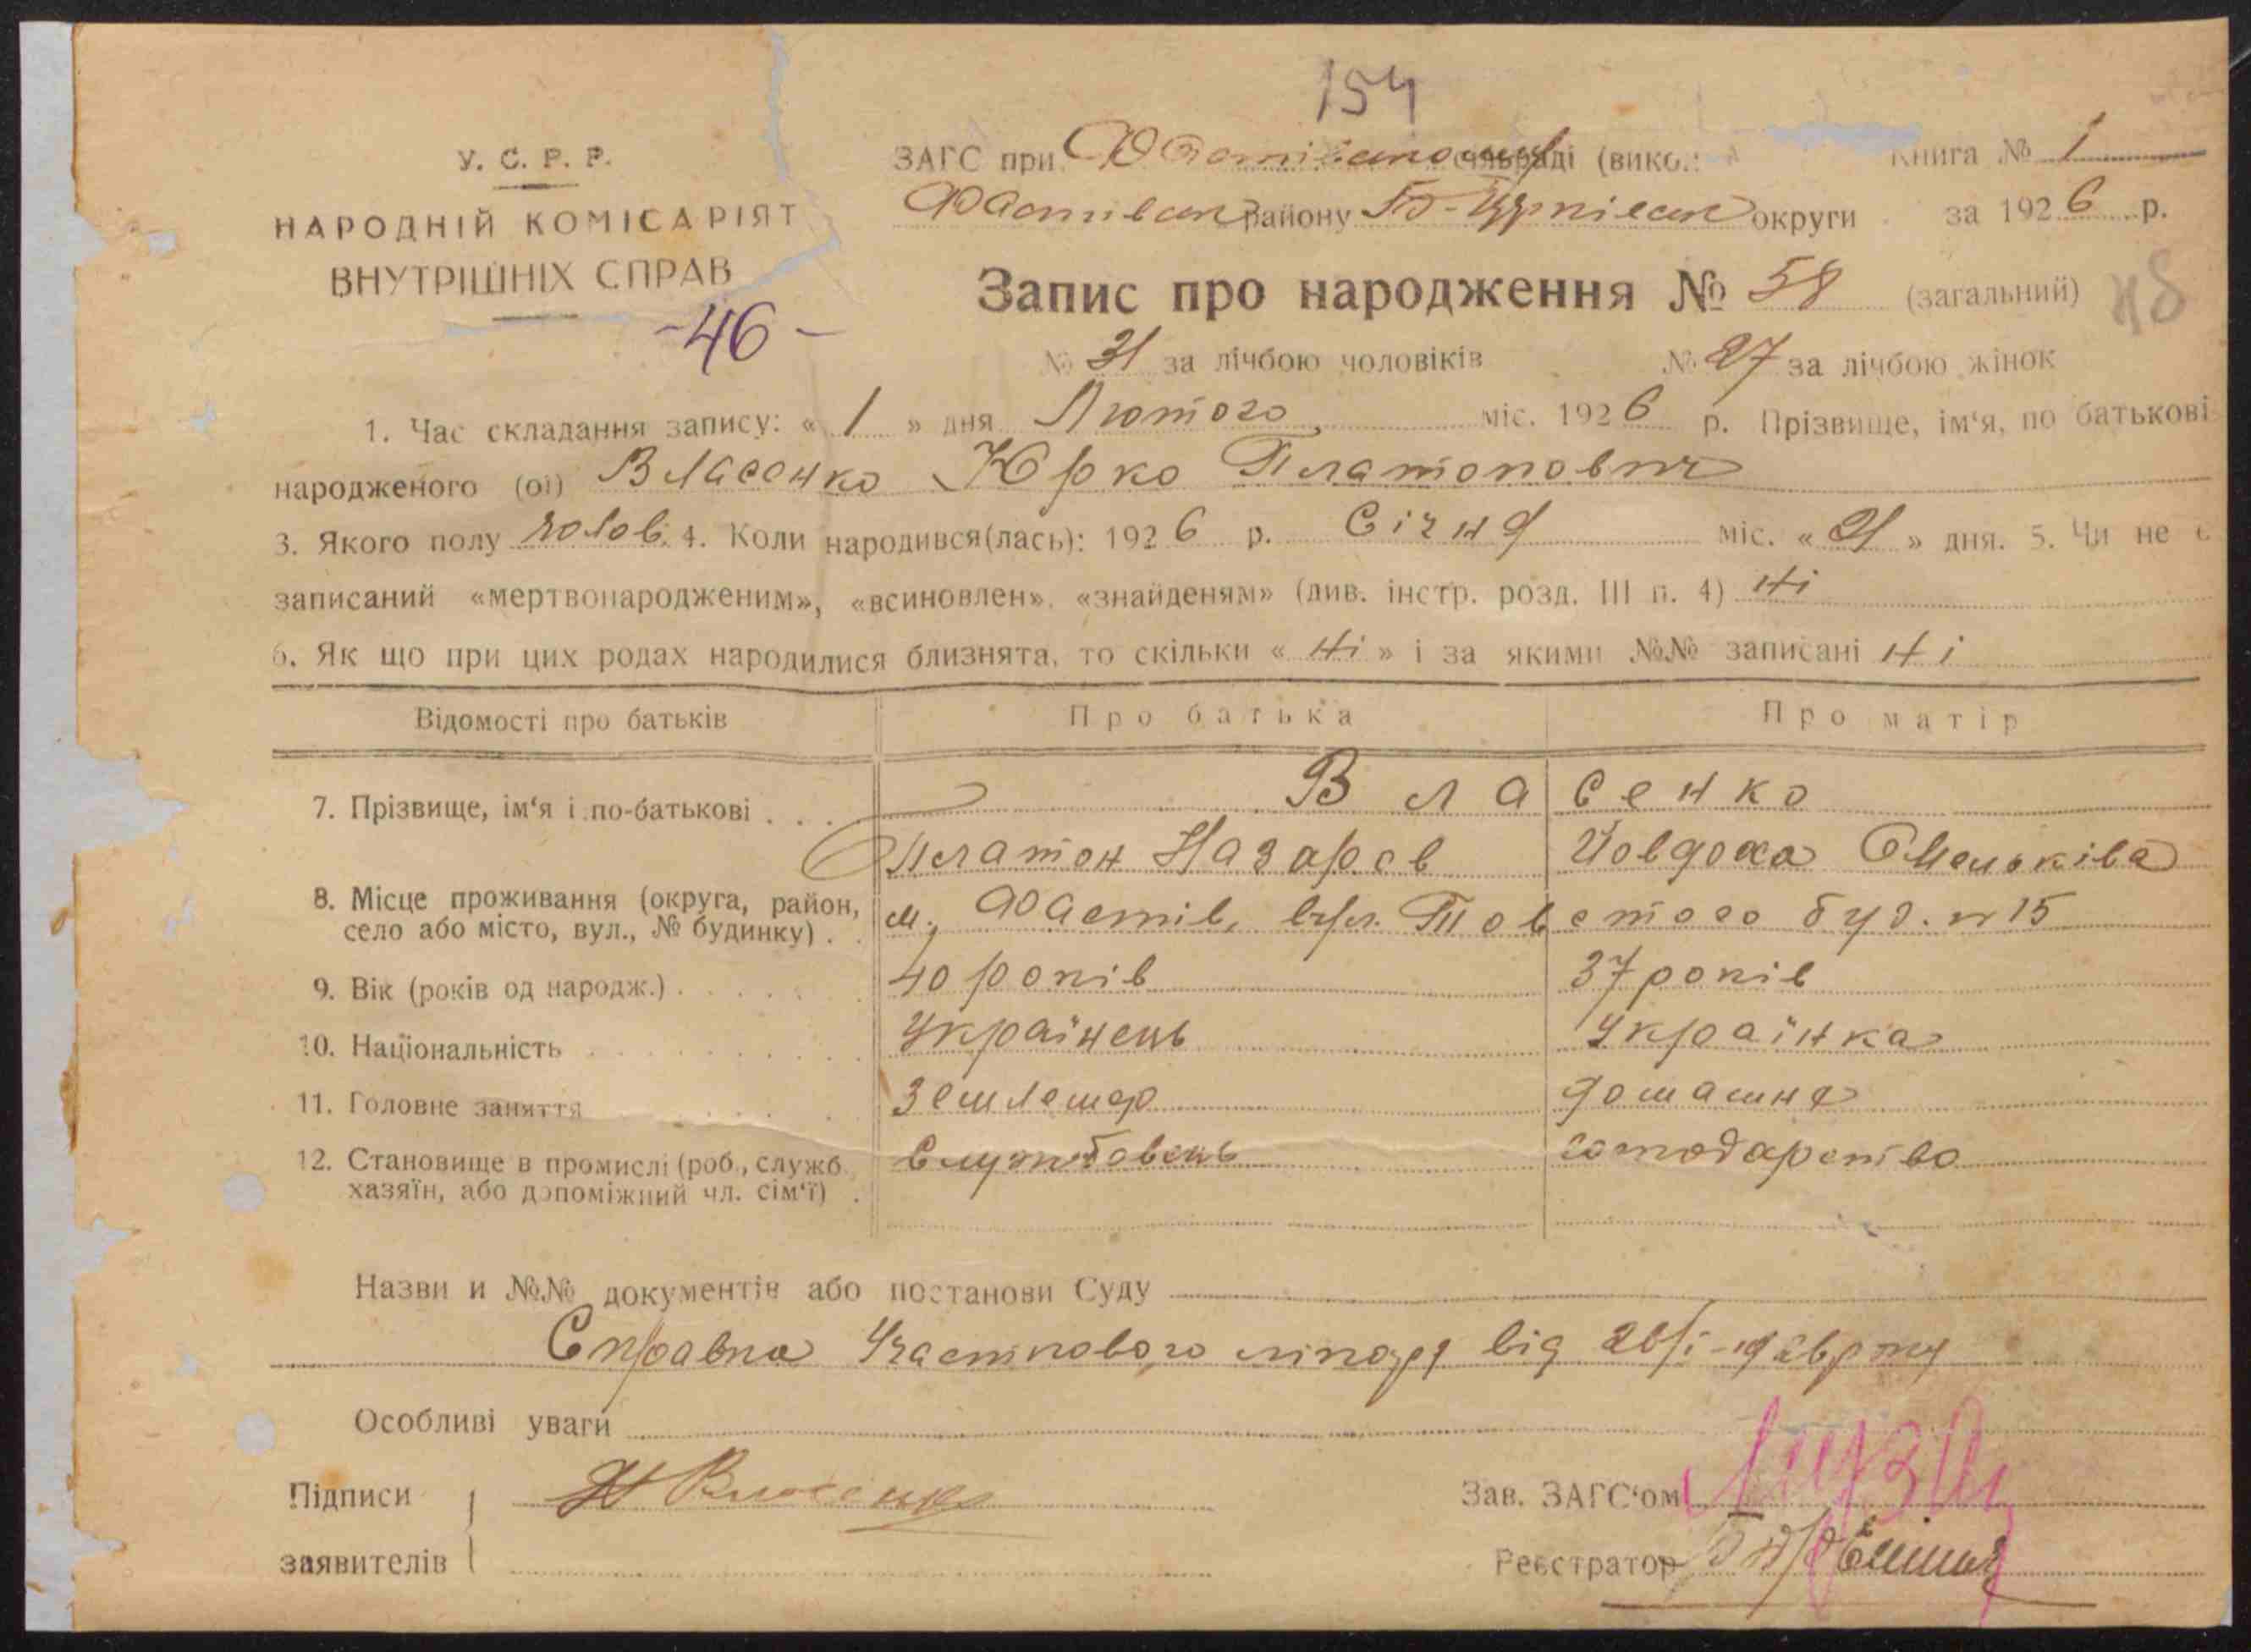 154
У. С. Р. Р.
НАРОДНІЙ КОМІСАРІЯТ
ВНУТРІШНІХ СПРАВ
-46-
ЗАГС при сільраді (вико.:
Книга № 1
Фастівськ району Б-Церківськ округи за 1926 р.
Запис про народження № 58 (загальний)
№ 31 за лічбою чоловіків № 27 за лічбою жінок
1. Час складання запису: « 1 » дня Лютого міс. 1926 р. Прізвище, ім‘я, по батькові
народженого (ої) Власенко Юрко Платонович
3. Якого полу чолов. 4. Коли народився(лась): 1926 р. Січня міс. « 21 » дня. 5. Чи не є
записаний «мертвонародженим», «всиновлен», «знайденям» (див. інстр. розд. III п. 4) Ні
6. Як що при цих родах народилися близнята, то скільки « Ні » і за якими №№ записані Ні
Відомості про батьків Про батька Про матір
7. Прізвище, ім‘я і по-батькові . . . Власенко
Платон Назаров Йовдоха Омельківа
8. Місце проживання (округа, район,
село або місто, вул., № будинку) . . м. Фастів, вул. Товстого буд. № 15
9. Вік (років од народж.) . . . . . . 40 років 37 років
10. Національність . . . . . . . . . Українець Українка
11. Головне заняття Землемір домашнє
12. Становище в промислі (роб., служб. Службовець господарство
хазяїн, або допоміжний чл. сім‘ї) .
Назви и №№ документів або постанови Суду
Справка Участкового лікаря від
Особливі уваги
Підписи Власенко
заявителів
Зав. ЗАГС‘ом
Реєстратор